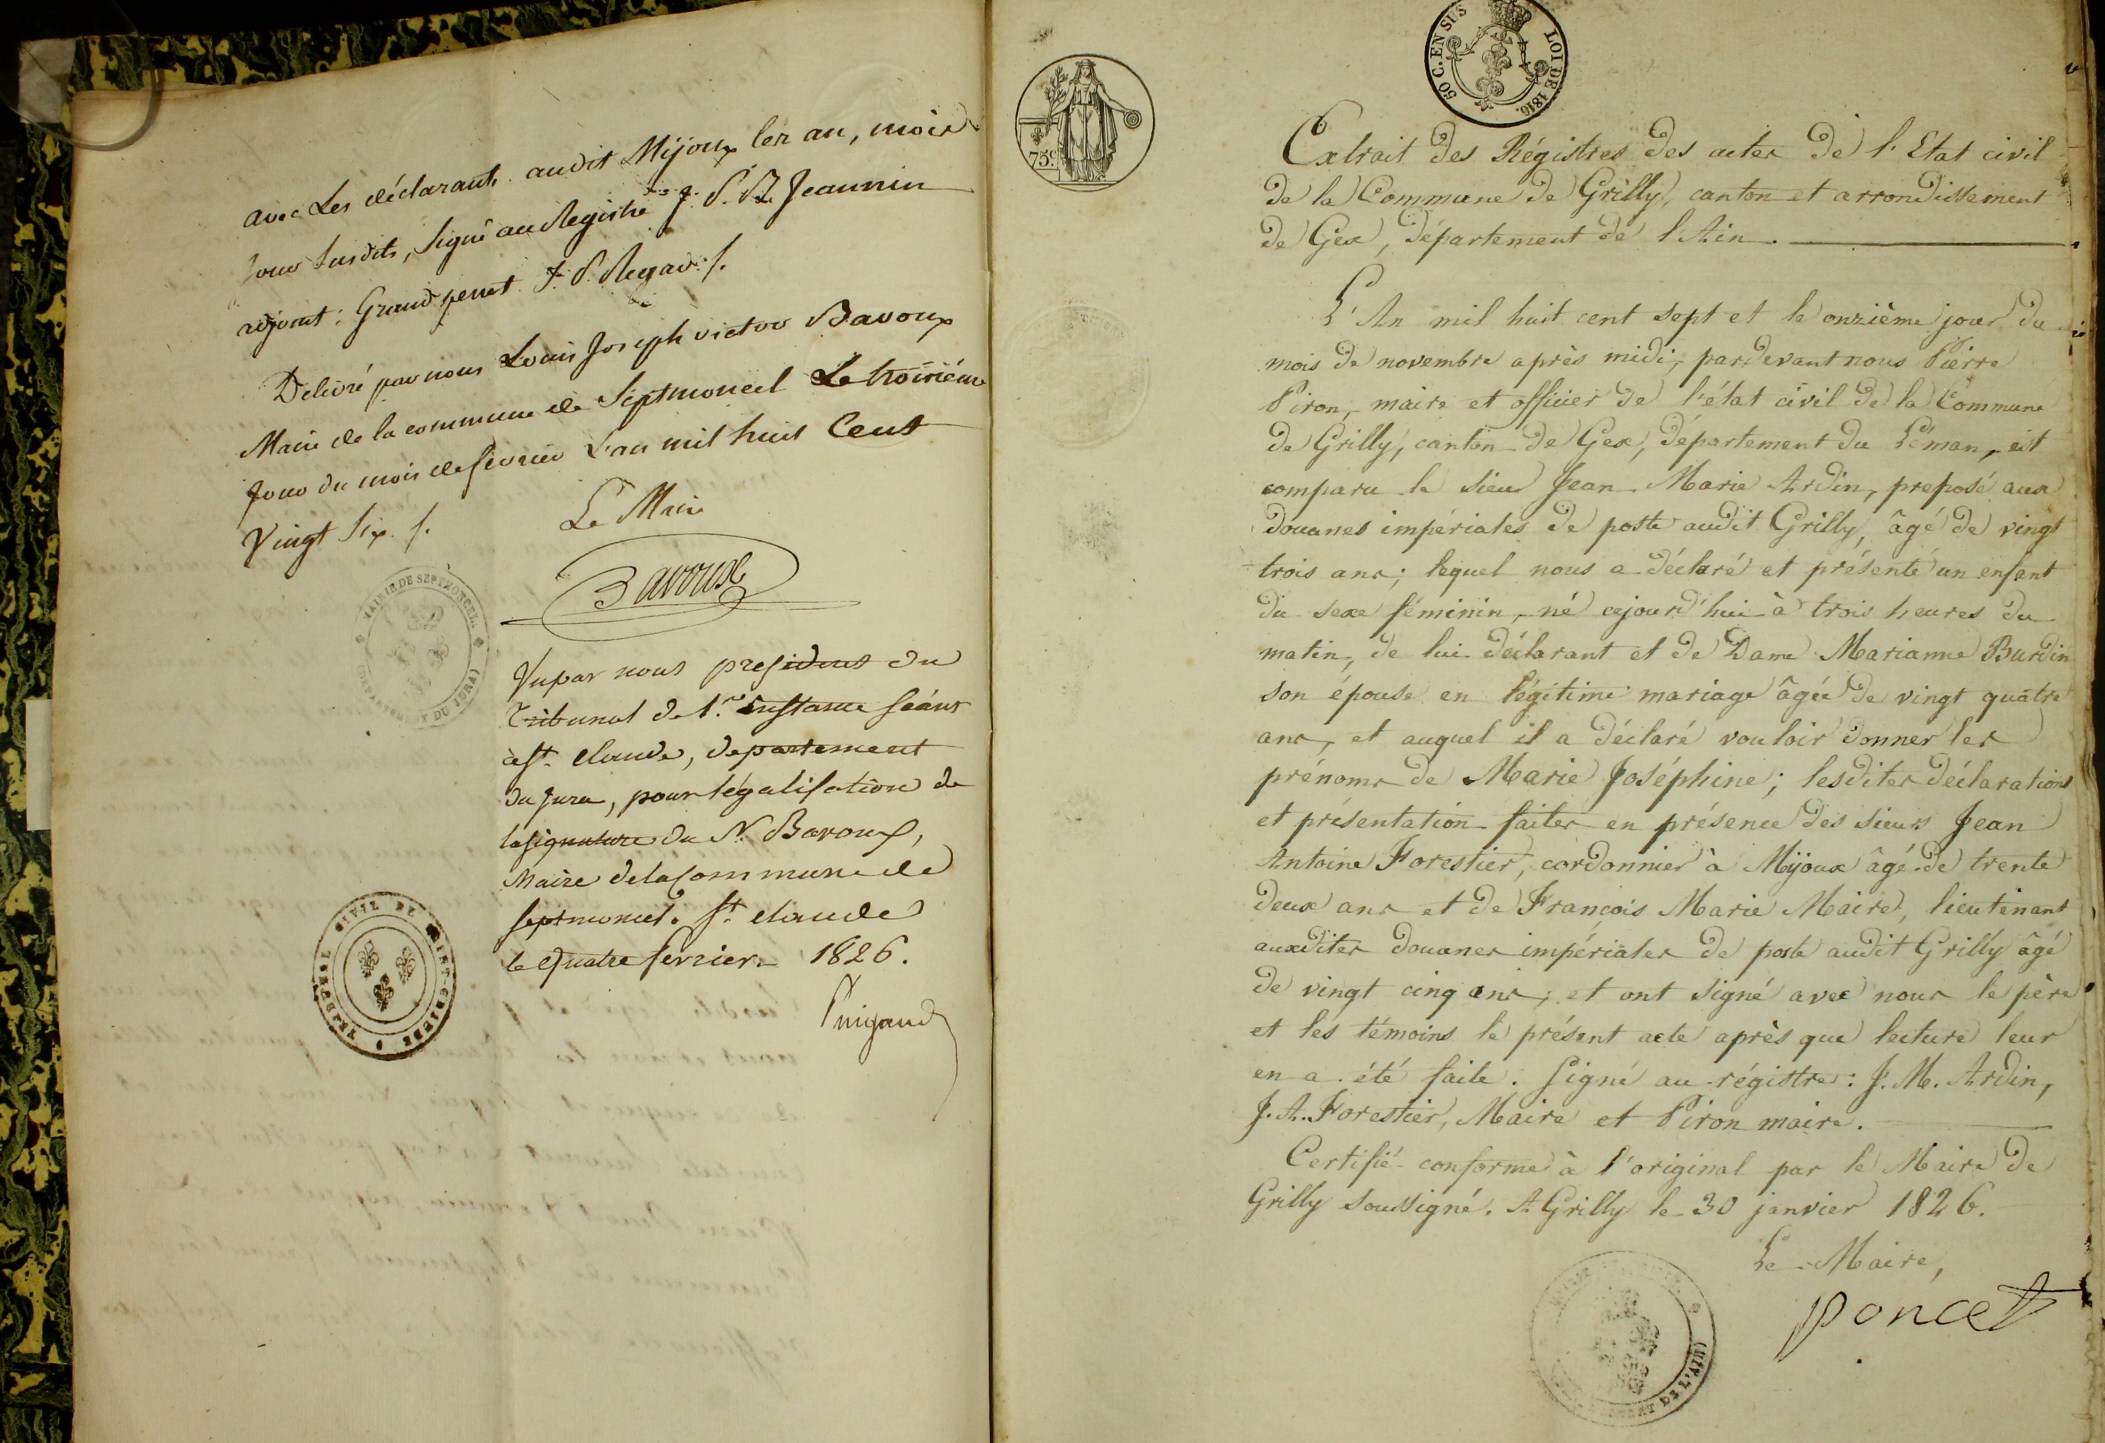 avec Les déclarants audit Mijoux les an, mois
Jour susdits, signé au Registre J. P. R. Jeannin
adjoint : Grandperret J. P. Regad /.
Délivré par nous Louis Joseph victor Bavoux
Maire de la commune de Septmoncel Le troisième
Jour du mois de février L'an mil huit Cent
Vingt Six /.
Le Maire
Bavoux
MAIRIE DE SEPTMONCEL
(DEPARTEMENT DU JURA)
Vu par nous president du
Tribunal de 1.re instance séant
à St. claude, departement
du Jura, pour légalisation de
la signature du Sr. Bavoux,
Maire de la Commune de
septmoncel. St. claude
le quatre fevrier 1826.
TRIBUNAL CIVIL DE SAINT-CLAUDE
75c.
50 C. EN SUS
LOI DE 1816.
Extrait des Régistres des actes de l'Etat civil
de la Commune de Grilly, canton et arrondissement
de Gex, département de l'Ain.
L'An mil huit cent sept et le onzième jour du
mois de novembre après midi, pardevant nous Pierre
Piron, maire et officier de l'état civil de la Commune
de Grilly, canton de Gex, département du Léman, est
comparu le sieur Jean Marie Ardin, preposé aux
douanes impériales de poste audit Grilly, âgé de vingt
trois ans; lequel nous a déclaré et présenté un enfant
du sexe féminin, né cejourd'hui à trois heures du
matin, de lui déclarant et de Dame Marianne Burdin
son épouse en légitime mariage âgée de vingt quatre
ans, et auquel il a déclaré vouloir donner les
prénoms de Marie Joséphine; lesdites déclarations
et présentation faites en présence des sieurs Jean
Antoine Forestier, cordonnier à Mijoux âgé de trente
deux ans et de François Marie Maire, lieutenant
auxdites douanes impériales de poste audit Grilly âgé
de vingt cinq ans; et ont signé avec nous le père
et les témoins le présent acte après que lecture leur
en a été faite. Signé au régistre: J. M. Ardin,
J. A. Forestier, Maire et Piron maire.
Certifié conforme à l'original par le Maire de
Grilly soussigné. A Grilly le 30 janvier 1826.
Le Maire,
Poncet
DE L'AIN)